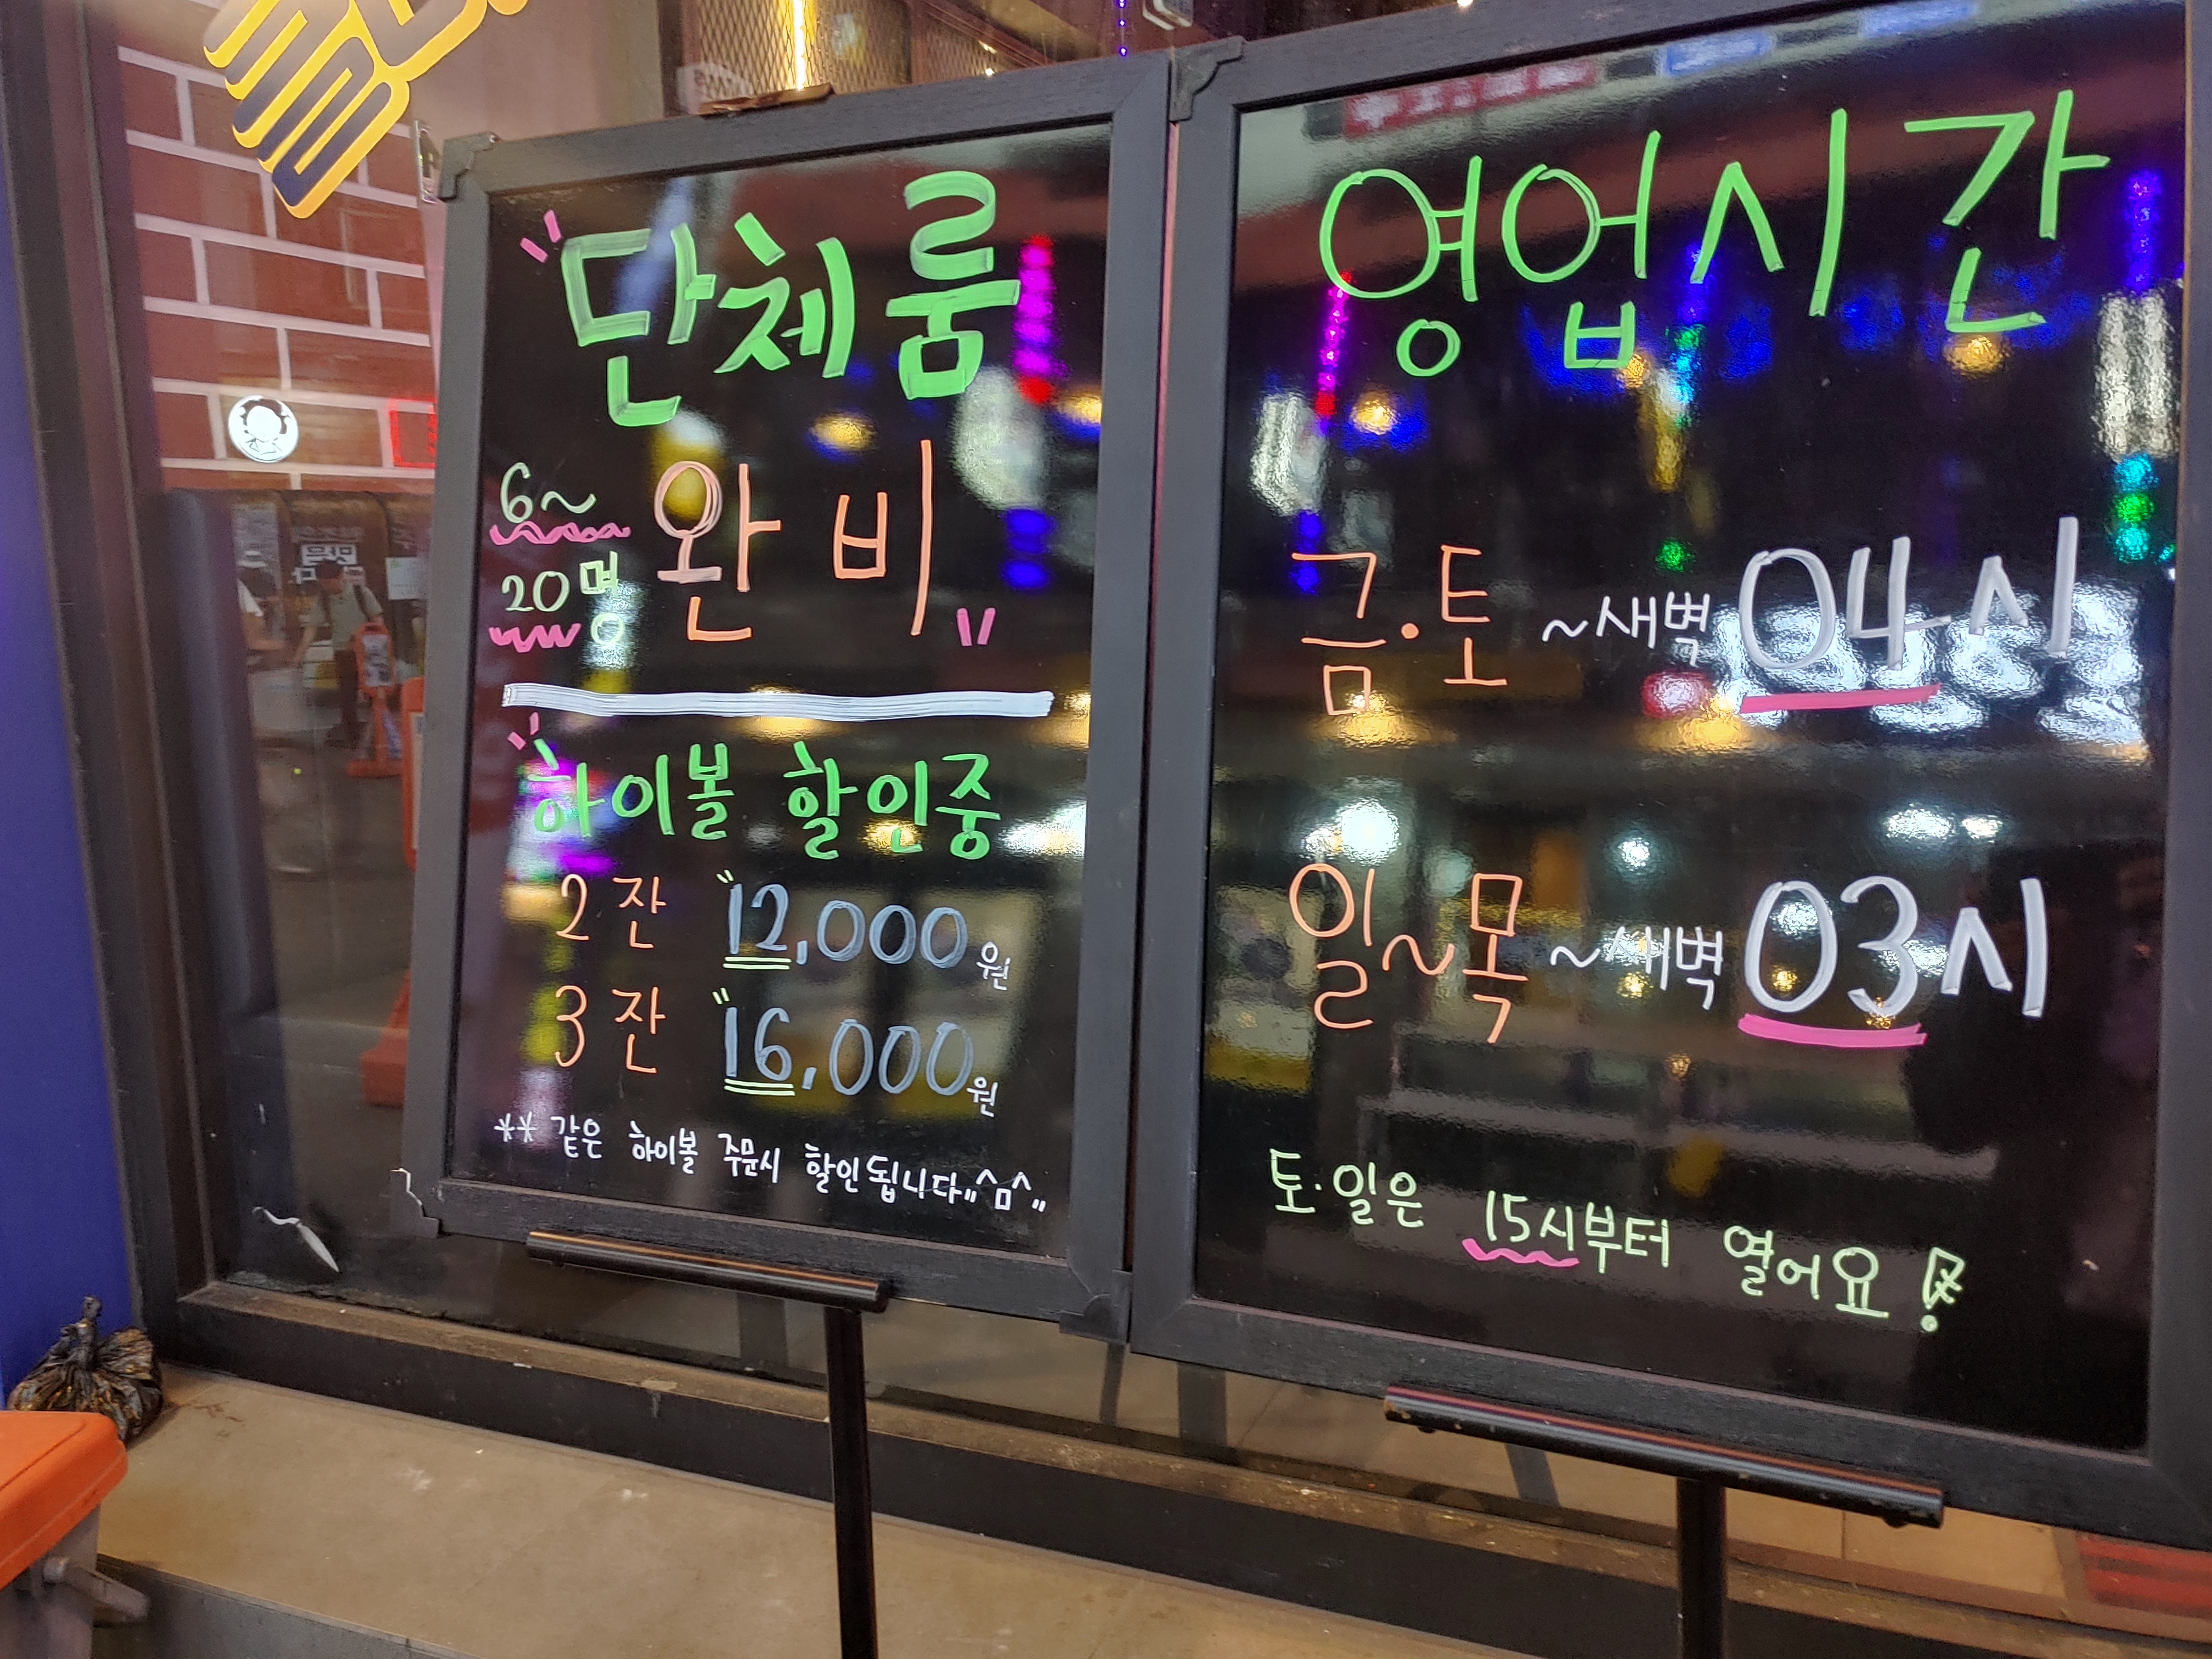 "단체룸
6~
20명
완비"
"하이볼 할인중
2잔 "12,000원
3잔 "16,000원
** 같은 하이볼 주문시 할인됩니다"^ㅁ^"
영업시간
금·토 ~새벽 04시
일~목 ~새벽 03시
토·일은 15시부터 열어요!